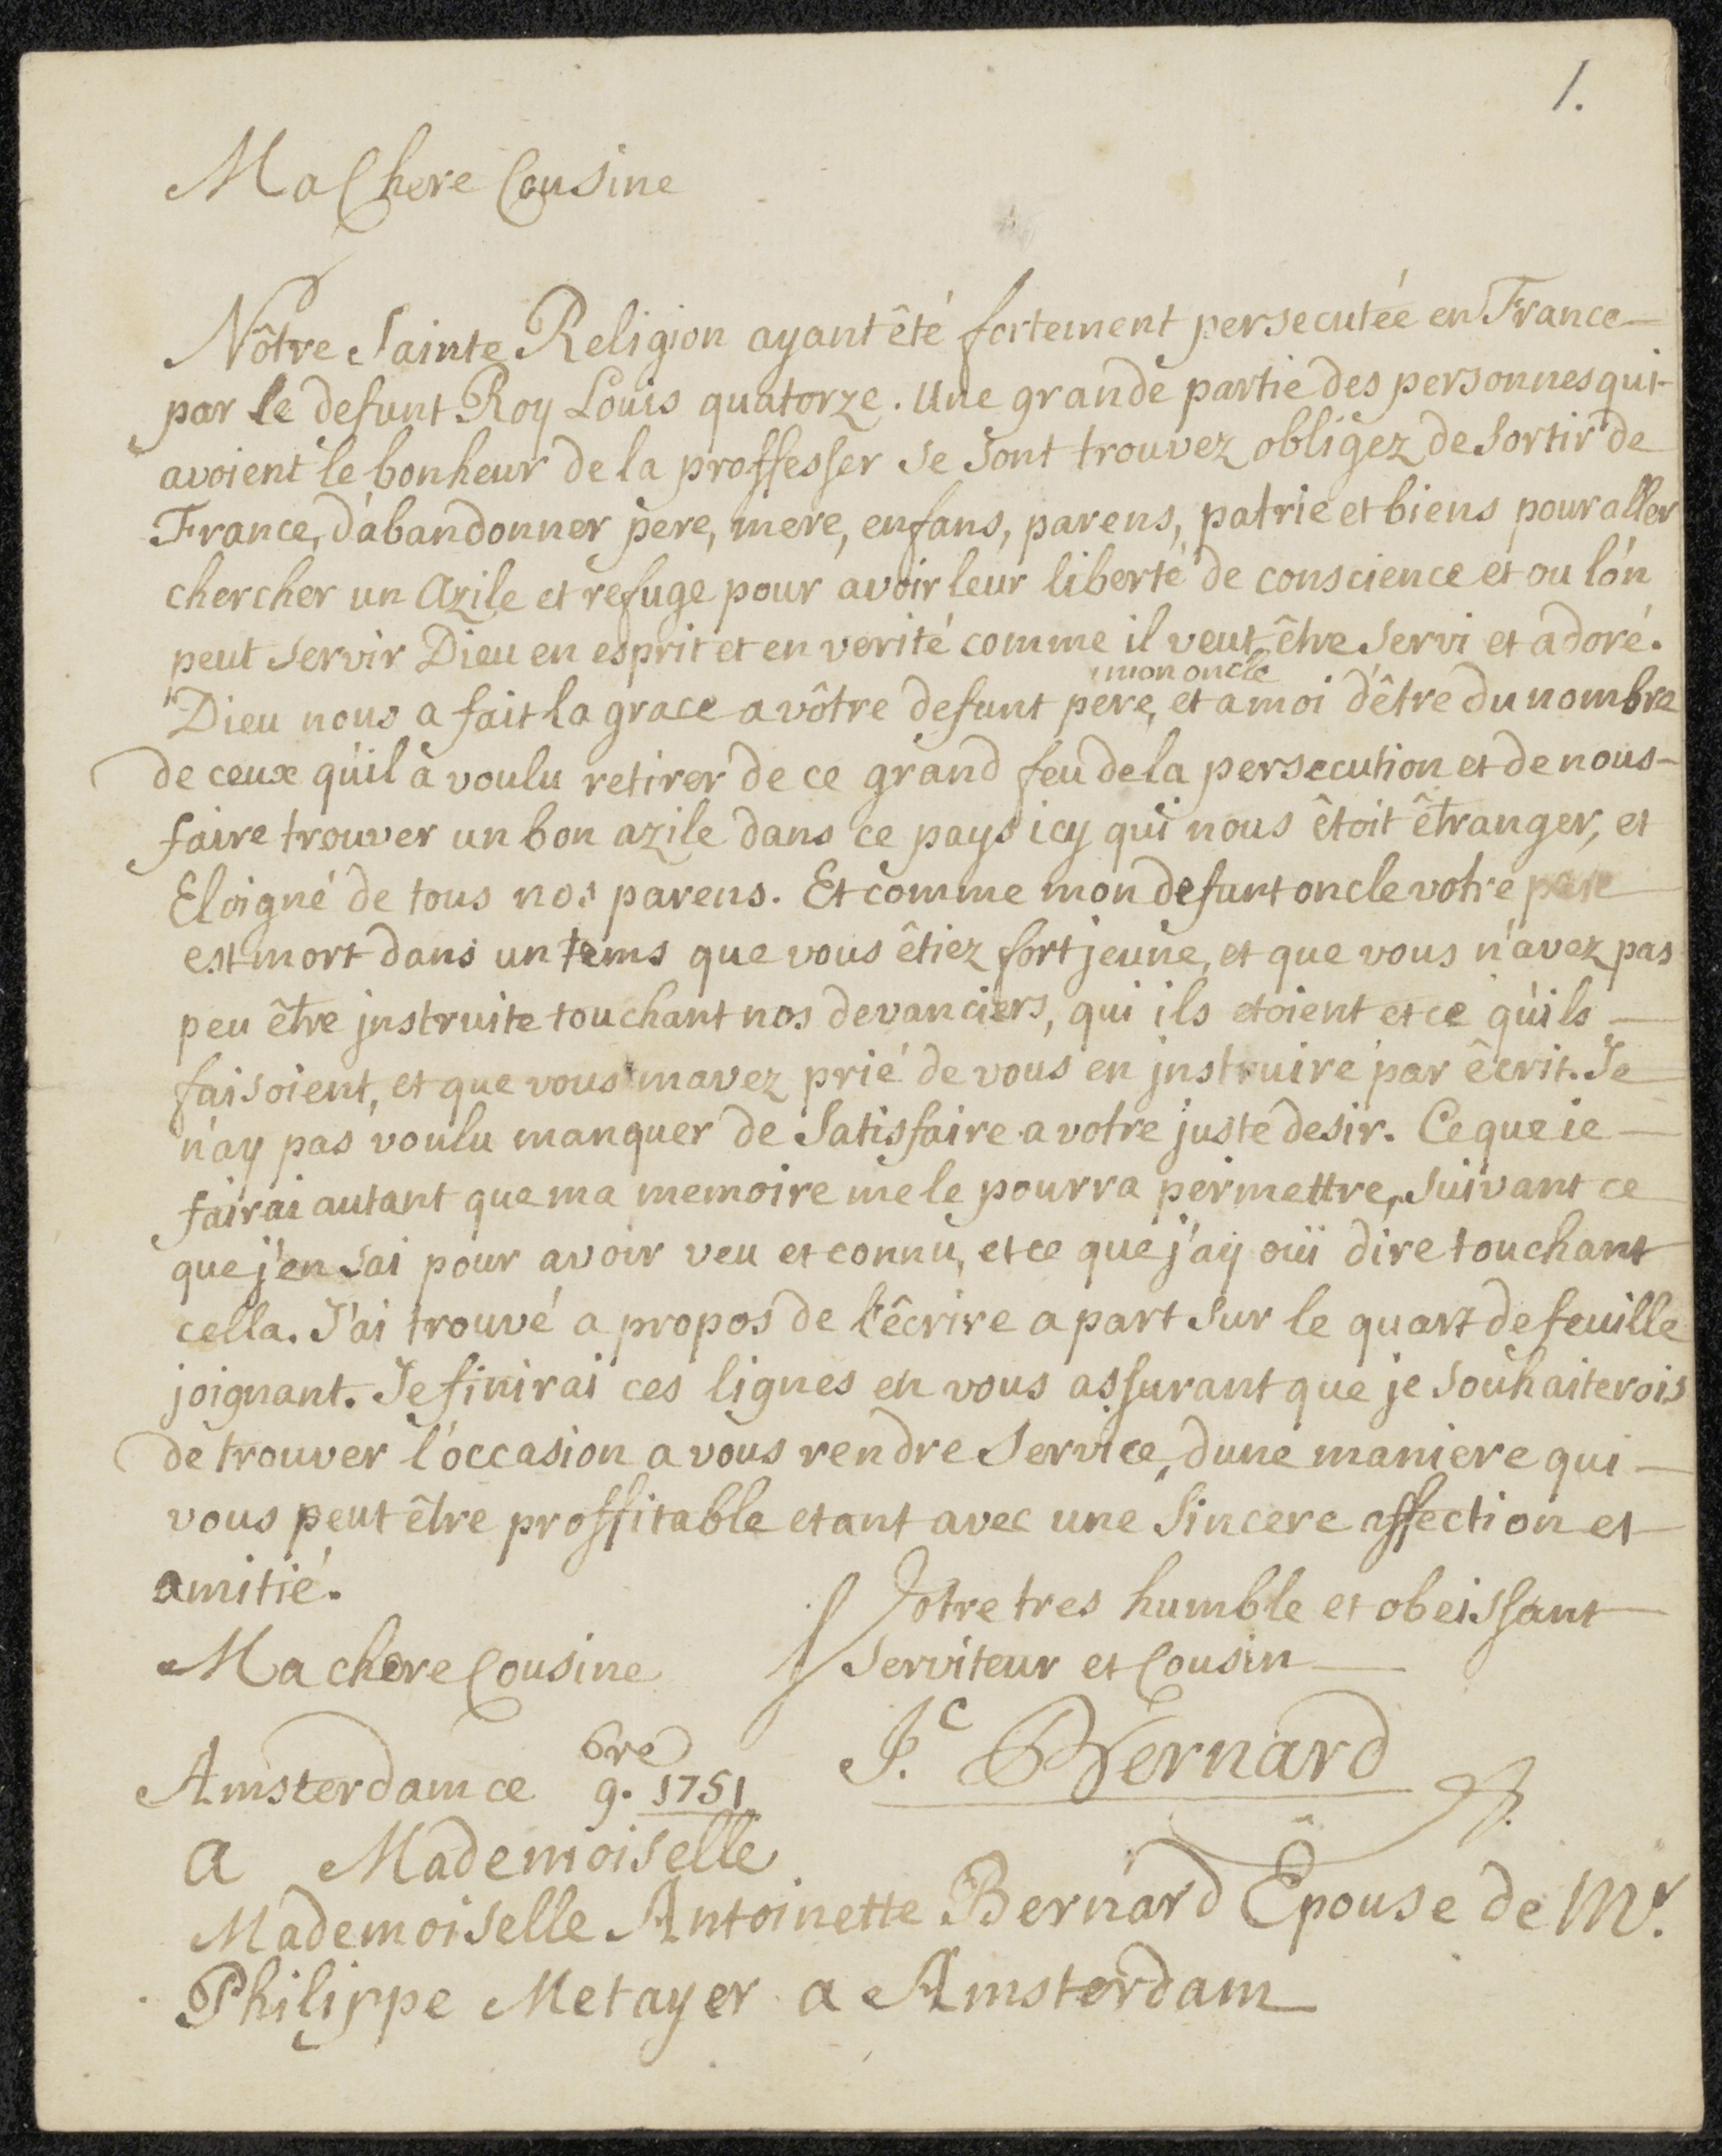 1.
Ma Chere Cousine
Nôtre Sainte Religion ayant êté fortement persecutée en France
par le defunt Roy Louis quatorze. Une grande partie des personnes qui
avoient le bonheur de la proffesser se sont trouvez obligez de sortir de
France, d'abandonner pere, mere, enfans, parens, patrie et biens pour aller
chercher un azile et refuge pour avoir leur liberté de conscience et ou l'on
peut servir Dieu en esprit et en verité comme il veut être servi et adoré.
mon oncle
Dieu nous a fait la grace a vôtre defunt pere, et a moi d'être du nombre
de ceux qu'il à voulu retirer de ce grand feu de la persecution et de nous
faire trouver un bon azile dans ce pays icy qui nous êtoit êtranger, et
Eloigné de tous nos parens. Et comme mon defunt oncle votre pere
est mort dans un tems que vous êtiez fort jeune, et que vous n'avez pas
peu être jnstruite touchant nos devanciers, qui ils etoient et ce qu'ils
faisoient, et que vous mavez prié de vous en jnstruire par êcrit. Je
n'ay pas voulu manquer de Satisfaire a votre juste desir. Ce que ie
fairai autant que ma memoire me le pourra permettre, suivant ce
que j'en sai pour avoir veu et connu, et ce que j'ay oüi dire touchant
cella. J'ai trouvé a propos de l'êcrire a part sur le quart de feuille
joignant. Je finirai ces lignes en vous assurant que je souhaiterois
de trouver l'occasion a vous rendre service, dune maniere qui
vous peut être proffitable etant avec une Sincere affection et
amitié.
Votre tres humble et obeissant
Ma chere Cousine
Serviteur et Cousin
Jc Bernard
bre
Amsterdam ce 9. 1751
a Mademoiselle
Mademoiselle Antoinette Bernard Êpouse de Mr.
Philippe Metayer a Amsterdam